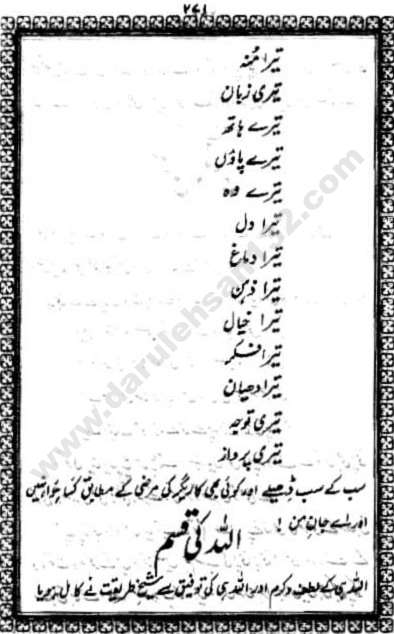 ۲۷۱
تیرا مُنہ
تیری زبان
تیرے ہاتھ
تیرے پاؤں
تیرے وہ
تیرا دل
تیرا دماغ
تیرا ذہن
تیرا خیال
تیرا فکر
تیرا دھیان
تیری توجہ
تیری پرواز
سب کے سب ڈھیلے اور کوئی بھی کاریگر کی مرضی کے مطابق کسا ہوا نہیں
اور اے جانِ من !
اللہ کی قسم
اللہ ہی کے لطف و کرم اور اللہ ہی کی توفیق سے شیخِ طریقت نے کامل ہو یا
www.darulehsan132.com